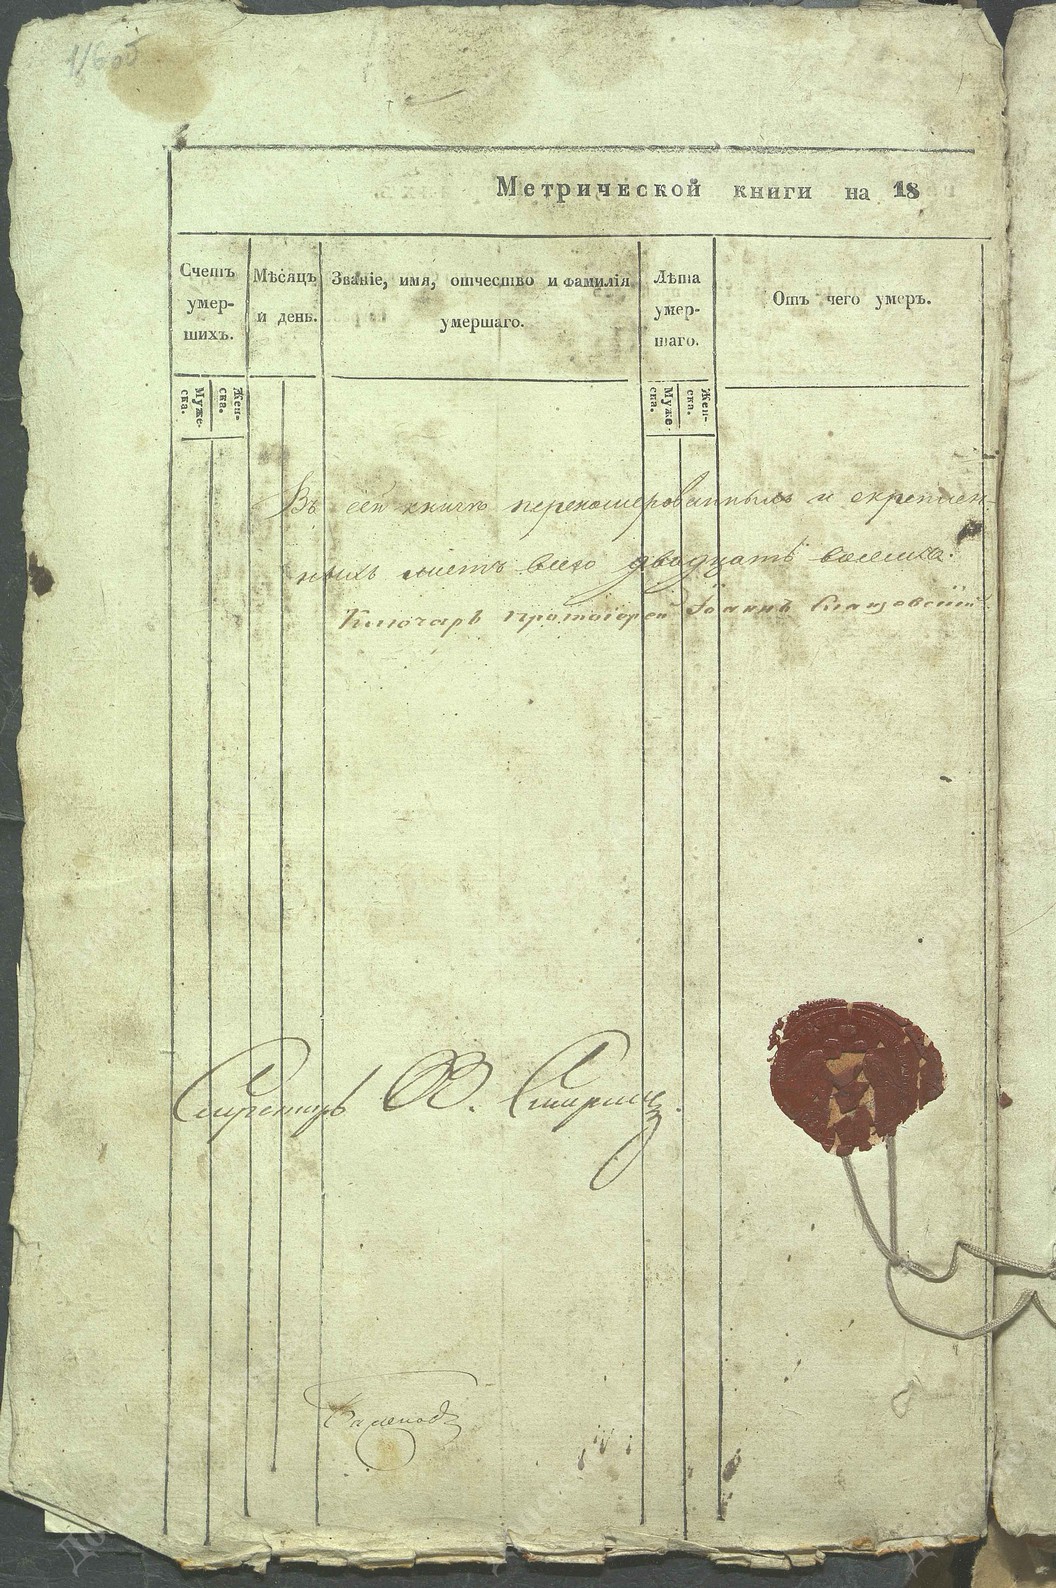 Метрической книги на 18
Счетъ умер-шихъ.
Мѣсяцъ и день.
Званіе, имя, отчество и фамилія умершаго.
Лѣта умер-шаго.
Отъ чего умеръ.
Муже-ска.
Жен-ска.
Муже-ска.
Жен-ска.
Въ сей книгѣ перенумерованныхъ и скреплен-
ныхъ листъ всего двадцать
Ключарь Протоіерей Іоаннъ
Секретарь